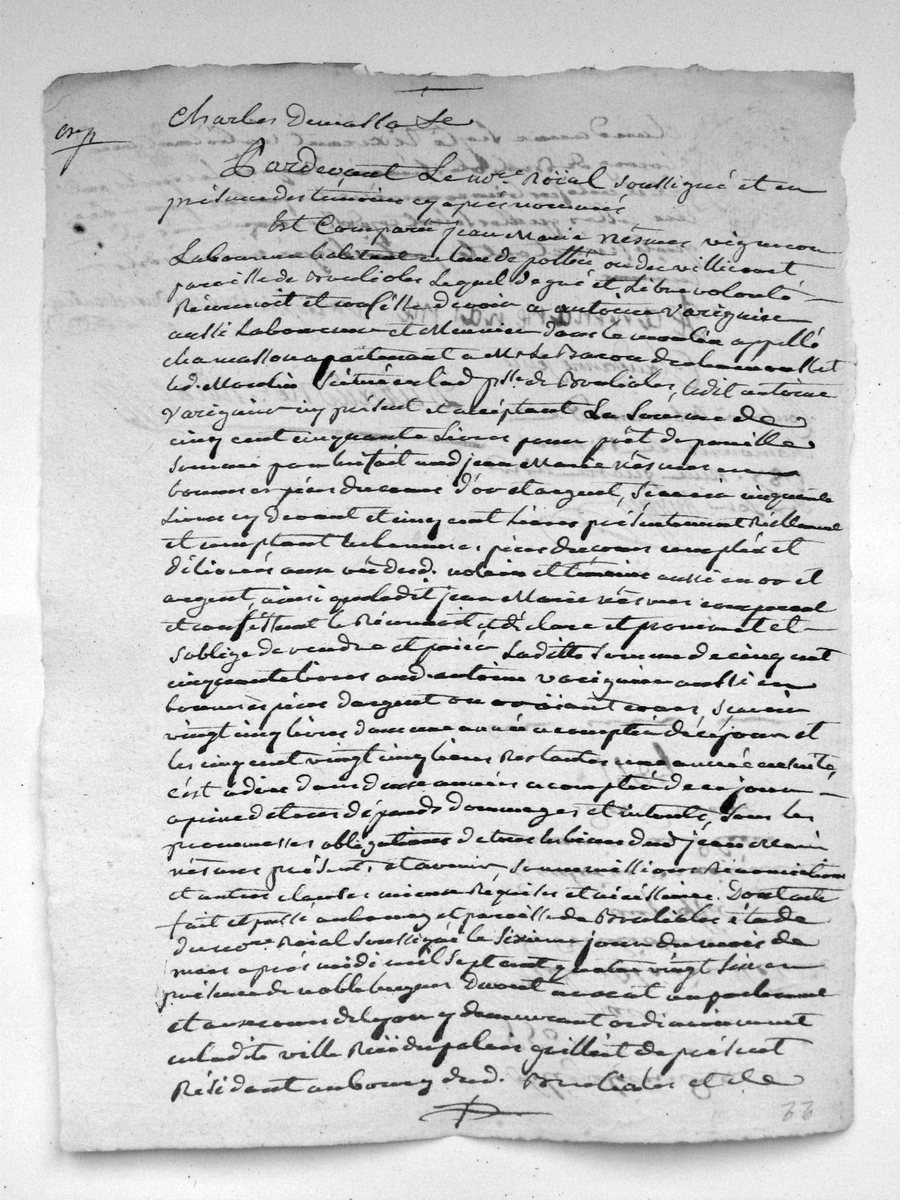 Charles Demassa Se
Pardevant Le no.re Roïal soussigné et en
présence des témoins cy après nommés
Est Comparu jean Marie nésmes vigneron
Laboureur habitant au lieu de
paroisse de Lequel de gré et Libre volonté
Reconnoit et confesse devoir a antoine varéguier
aussi Laboureur et Meunier dans le moulin appellé
chamasson apartenant a M. Le Baron de
led. Moulin scitué en lad. p.sse de Ledit antoine
varéguier cy présent et acceptant La Somme de
cinq cent cinquante Livres pour prêt de pareille
somme par lui fait aud. jean Marie nésmes en
bonnes espèces du cours d'or et argent, Scavoir cinquante
Livres cy devant et cinq cent Livres présentement Réellement
et comptant en bonnes espèces du cours comptées et
délivrées aux vües dud. notaire et témoins aussi en or et
argent, ainsi que ledit jean Marie nésmes comparant
et confessant le Reconnoit et déclare et promet et
s'oblige de rendre et paier Laditte somme de cinq cent
cinquante livres aud. antoine varéguier aussi en
bonnes espèces d'argent ou or aiant cours, Scavoir
vingt cinq livres dans une année a compter de ce jour et
les cinq cent vingt cinq livres Restantes une année ensuite,
c'est a dire dans deux années a compter de ce jour
a peine de tous dépends dommages et intérêts, sous les
promesses obligations de tous les biens dud. jean Marie
nésmes présents et avenir, soumissions Rénonciations
et autres clauses mieux Requises et nécessaires. Dont acte
fait et passé au bourg et paroisse de étude
du no.re Roïal soussigné le sixieme jour du mois de
mars après midi mil sept cent quatre vingt six en
présence de noble Dwont avocat en parlement
et aux cours de Lyon y demeurant ordinairement
en ladite ville Ruë du palais grillet de présent
Résidant au bourg dud. et de
22